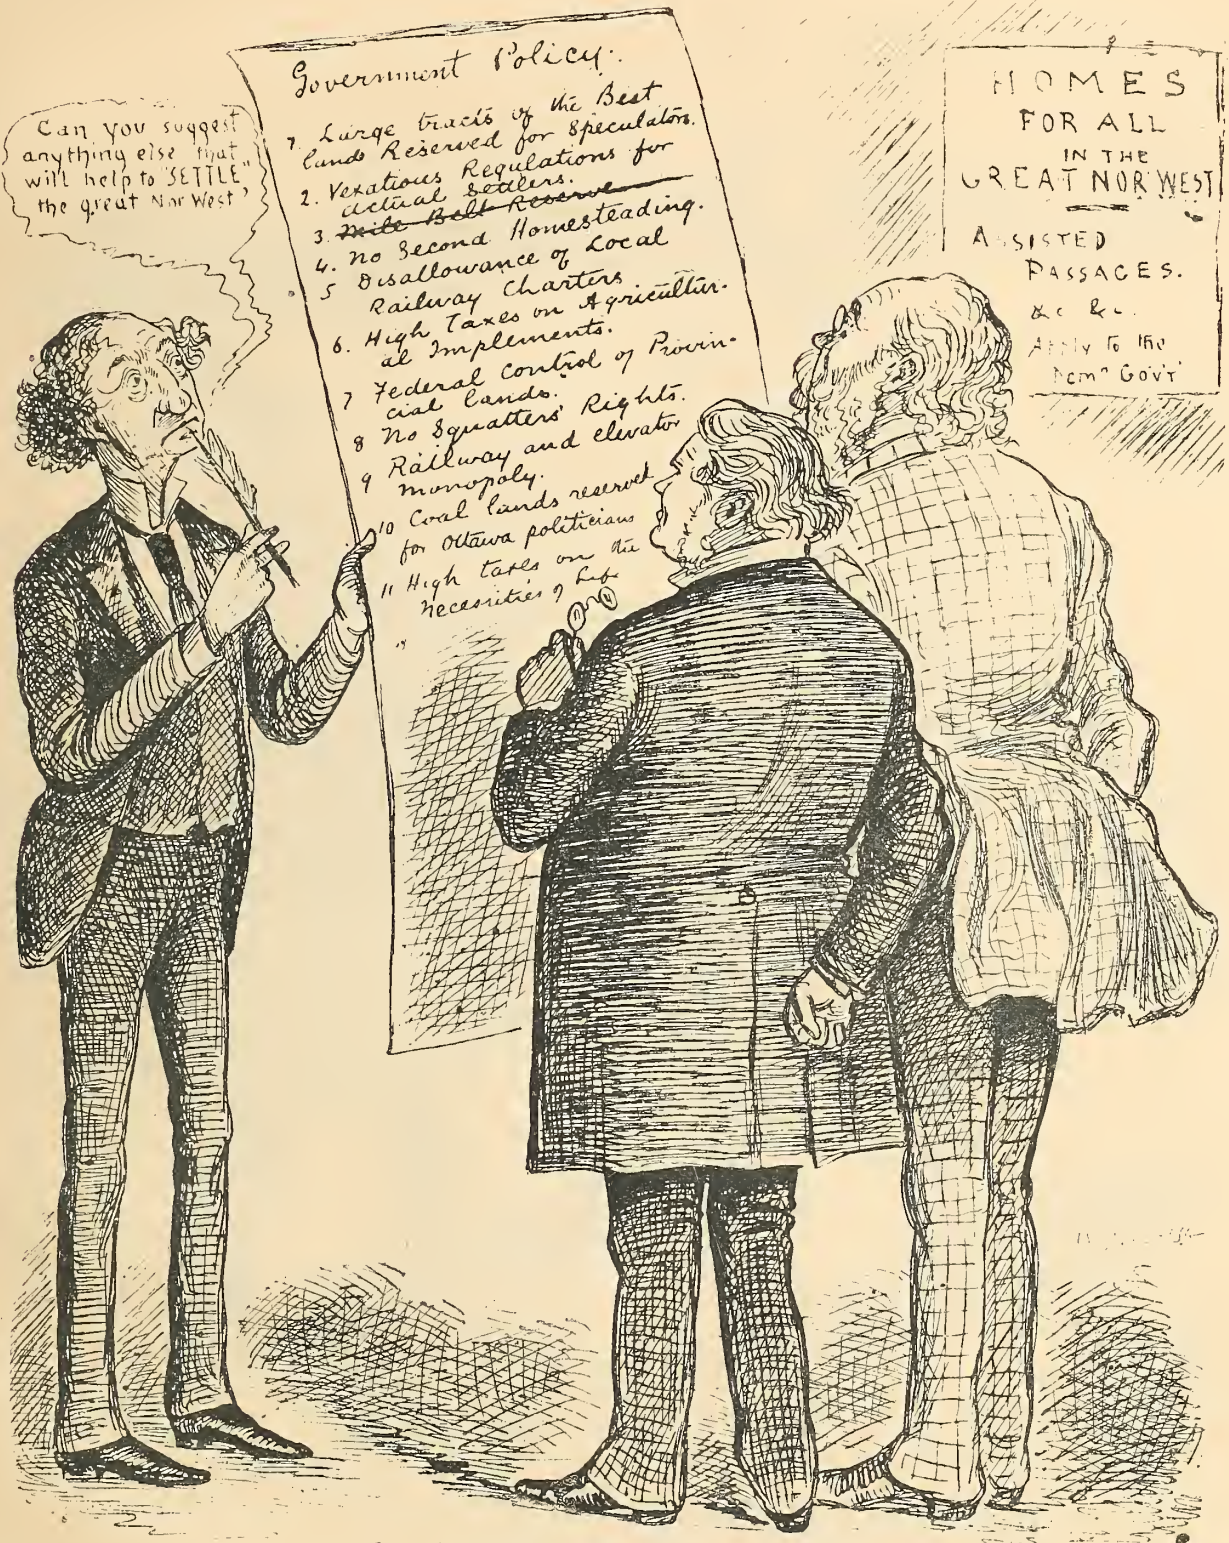 Can you suggest
anything else that
will help to "SETTLE"
the great Nor West?
Government Policy.
1. Large tracts of the Best
lands Reserved for Speculators.
2. Vexatious Regulations for
actual Settlers.
3. Mile Belt Reserve
4. No Second Homesteading.
5 Disallowance of Local
Railway Charters
6. High Taxes on Agricultur-
al Implements.
7 Federal Control of Provin-
cial lands.
8 No Squatters' Rights.
9 Railway and elevator
monopoly.
10 Coal lands reserved
for Ottawa politicians
11 High taxes on the
necessities of Life
HOMES
FOR ALL
IN THE
GREAT NOR'WEST
ASSISTED
PASSAGES.
&c &c.
Apply to the
Domn Gov't